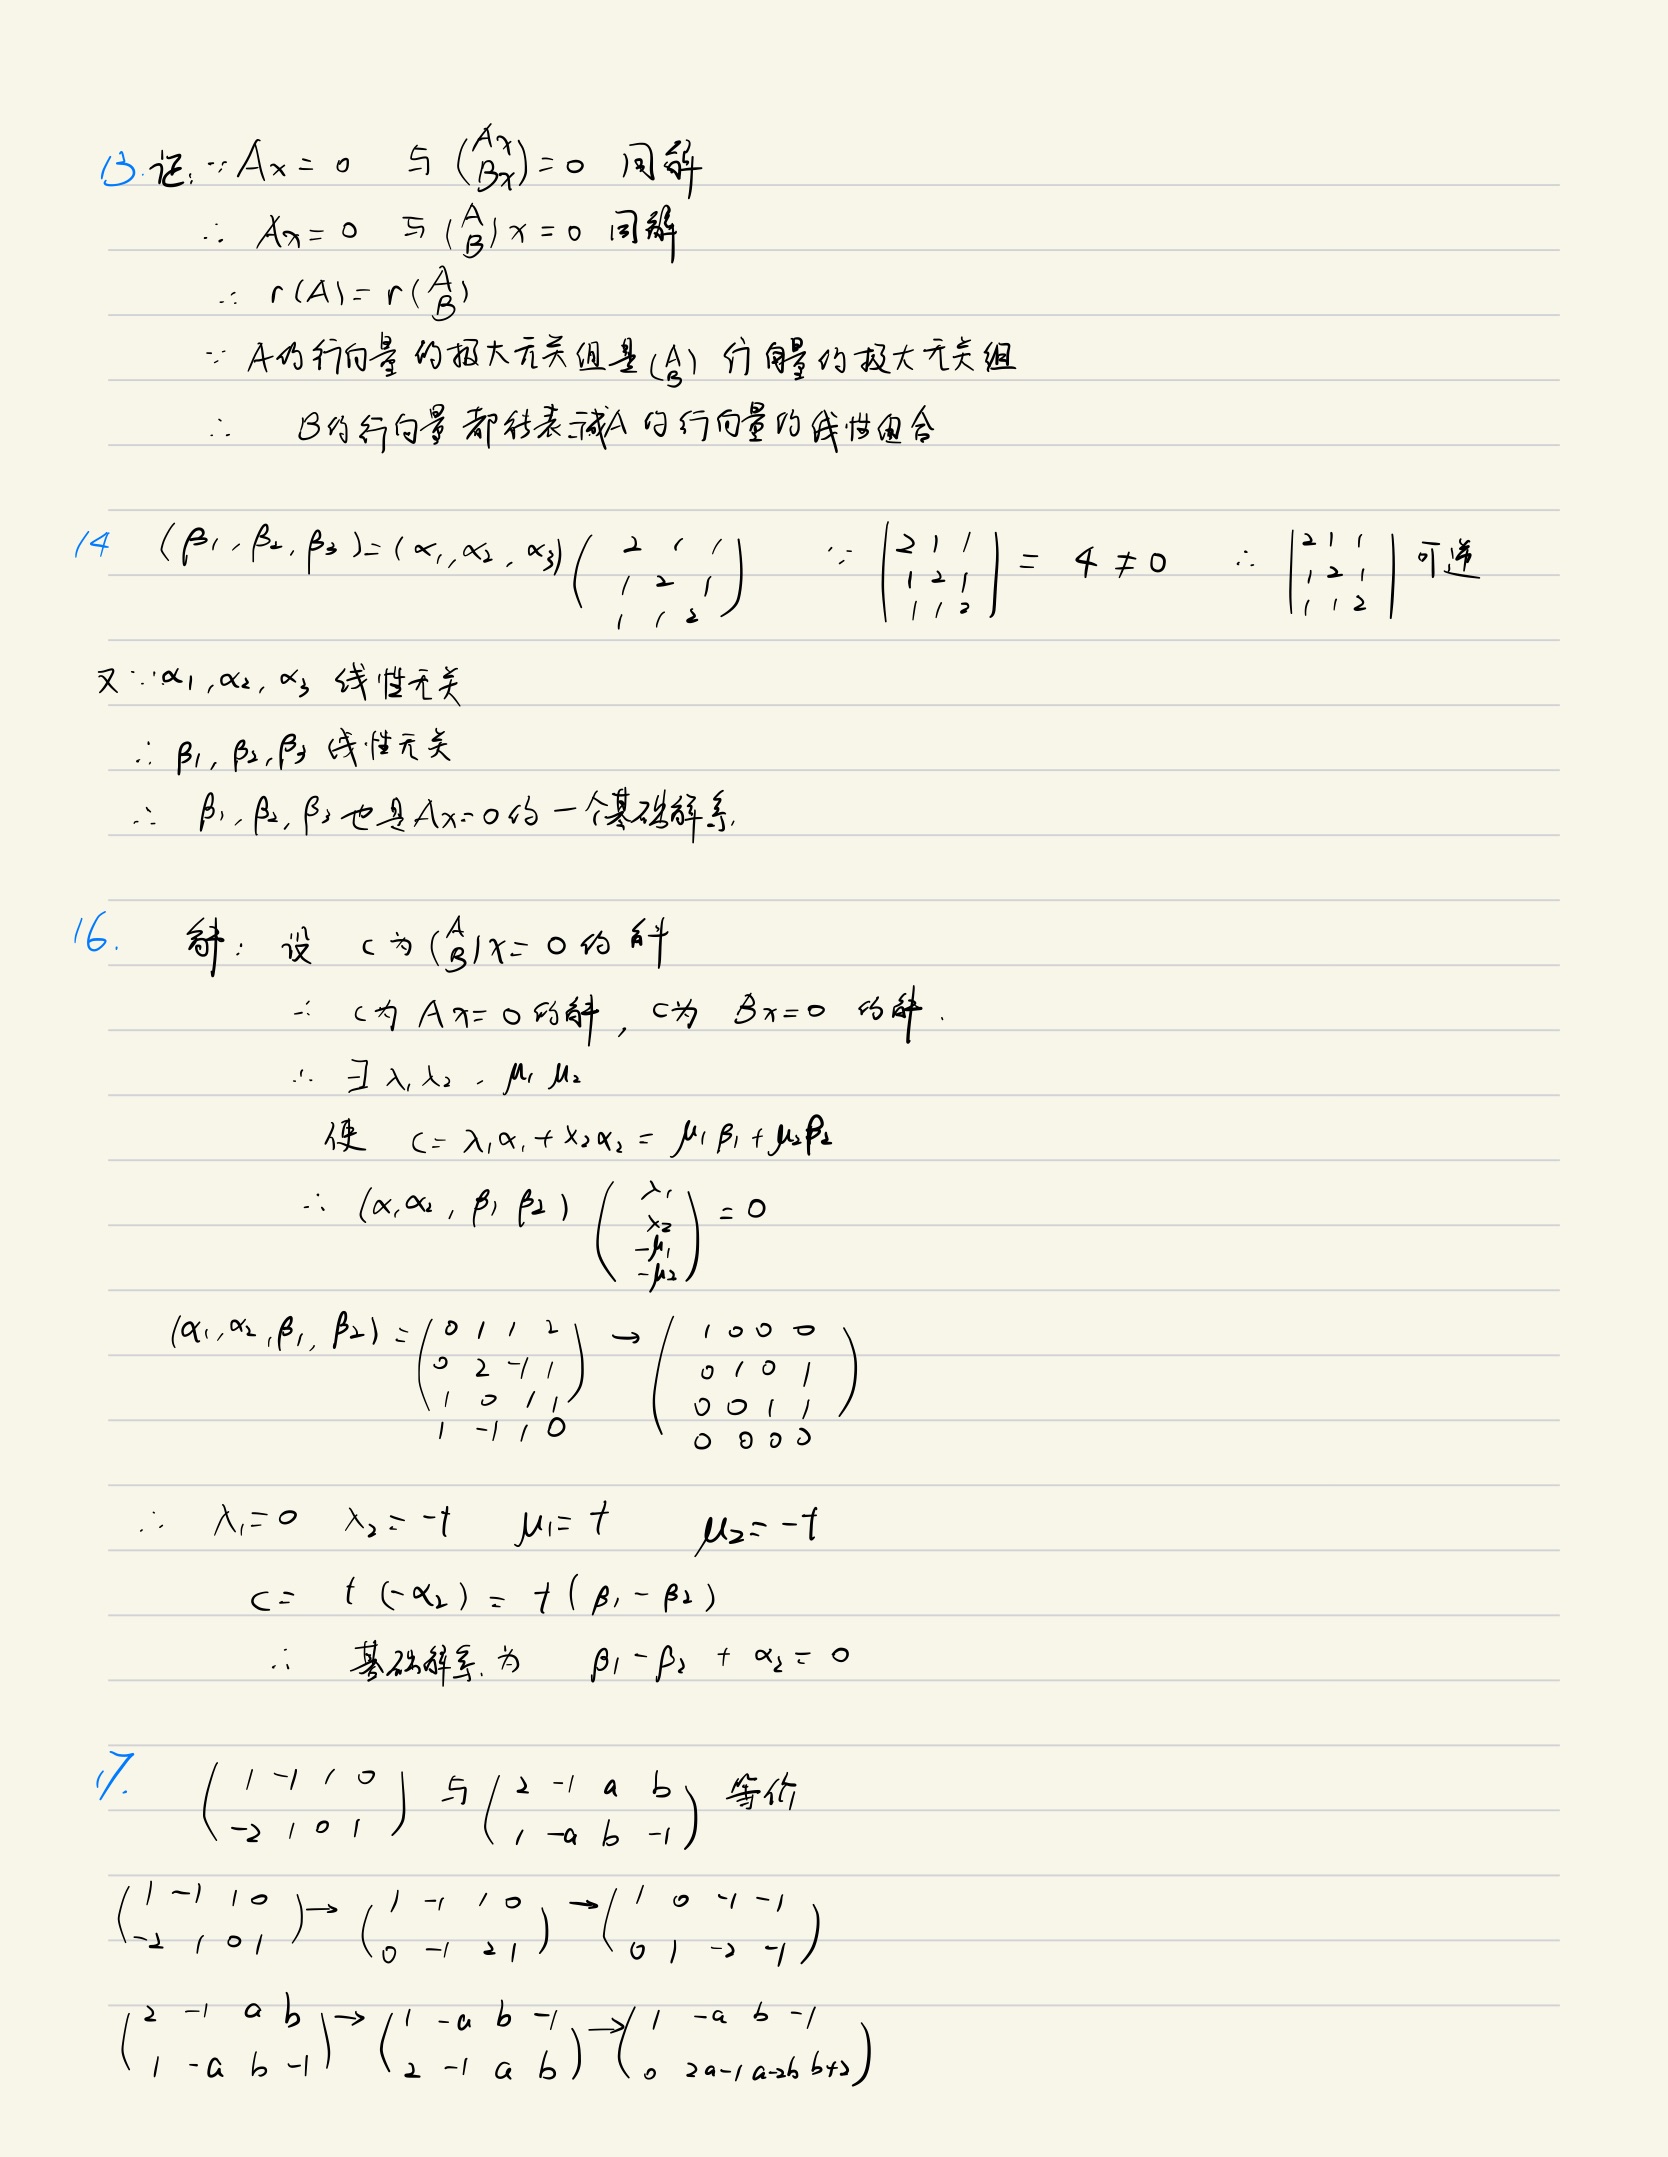 13. 证: ∵ Ax = 0 与 (Ax Bx) = 0 同解
∴ Ax = 0 与 (A B)x = 0 同解
∴ r(A) = r(A B)
∵ A的行向量的极大无关组是(A B)行向量的极大无关组
∴ B的行向量都能表示成A的行向量的线性组合
14 (β1, β2, β3) = (α1, α2, α3) (2 1 1 / 1 2 1 / 1 1 2) ∵ |2 1 1 / 1 2 1 / 1 1 2| = 4 ≠ 0 ∴ |2 1 1 / 1 2 1 / 1 1 2| 可逆
又∵ α1, α2, α3 线性无关
∴ β1, β2, β3 线性无关
∴ β1, β2, β3 也是Ax=0的一个基础解系.
16. 解: 设 c为(A B)x = 0的解
∴ c为Ax=0的解, c为 Bx=0 的解.
∴ ∃ λ1 λ2 . μ1 μ2
使 c = λ1α1 + λ2α2 = μ1β1 + μ2β2
∴ (α1 α2, β1 β2) (λ1 / λ2 / -μ1 / -μ2) = 0
(α1, α2, β1, β2) = (0 1 1 2 / 0 2 -1 1 / 1 0 1 1 / 1 -1 1 0) → (1 0 0 0 / 0 1 0 1 / 0 0 1 1 / 0 0 0 0)
∴ λ1 = 0 λ2 = -t μ1 = t μ2 = -t
c = t(-α2) = t(β1 - β2)
∴ 基础解系.为 β1 - β2 + α2 = 0
17. (1 -1 1 0 / -2 1 0 1) 与 (2 -1 a b / 1 -a b -1) 等价
(1 -1 1 0 / -2 1 0 1) → (1 -1 1 0 / 0 -1 2 1) → (1 0 -1 -1 / 0 1 -2 -1)
(2 -1 a b / 1 -a b -1) → (1 -a b -1 / 2 -1 a b) → (1 -a b -1 / 0 2a-1 a-2b b+2)